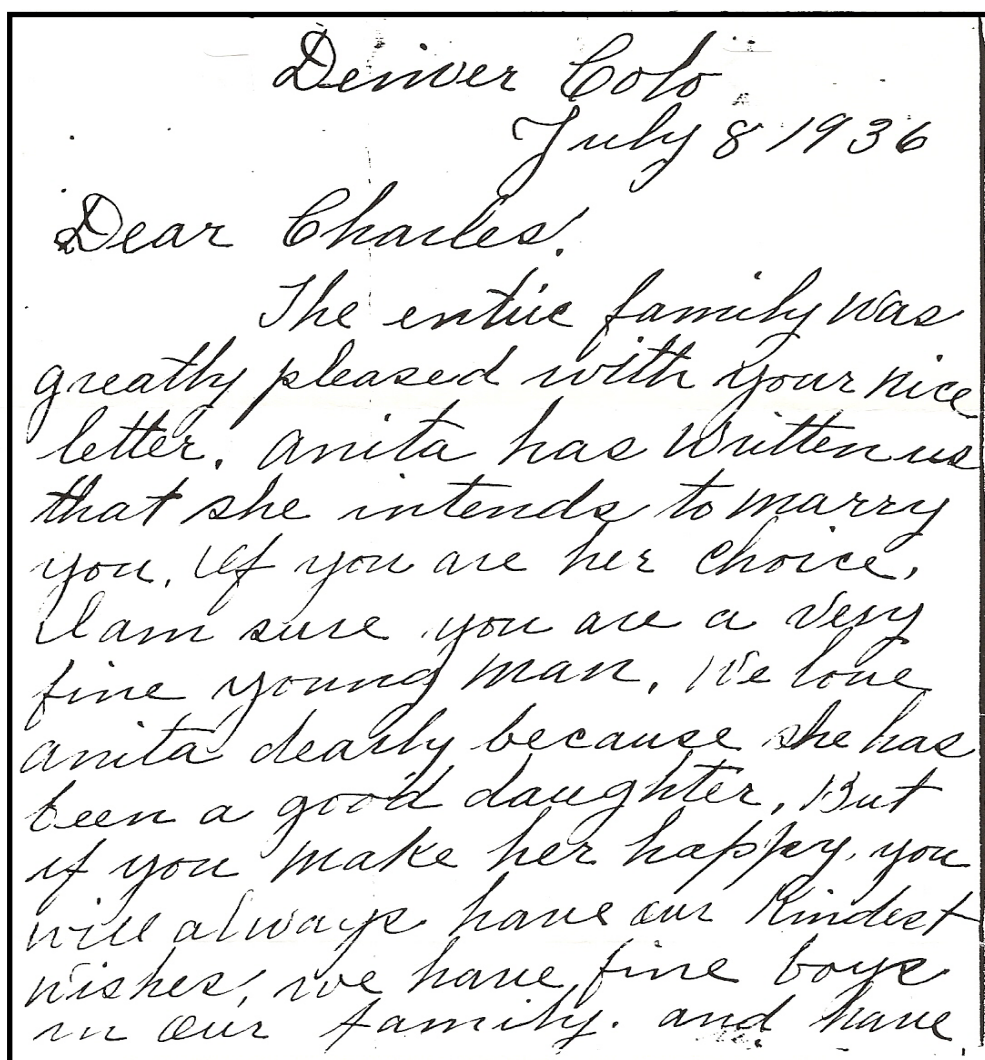 Denver Colo
July 8 1936
Dear Charles.
The entire family was
greatly pleased with your nice
letter. Anita has written us
that she intends to marry
you. If you are her choice,
I am sure you are a very
fine young man. We love
Anita dearly because she has
been a good daughter. But
if you make her happy, you
will always have our kindest
wishes, we have fine boys
in our family. and have